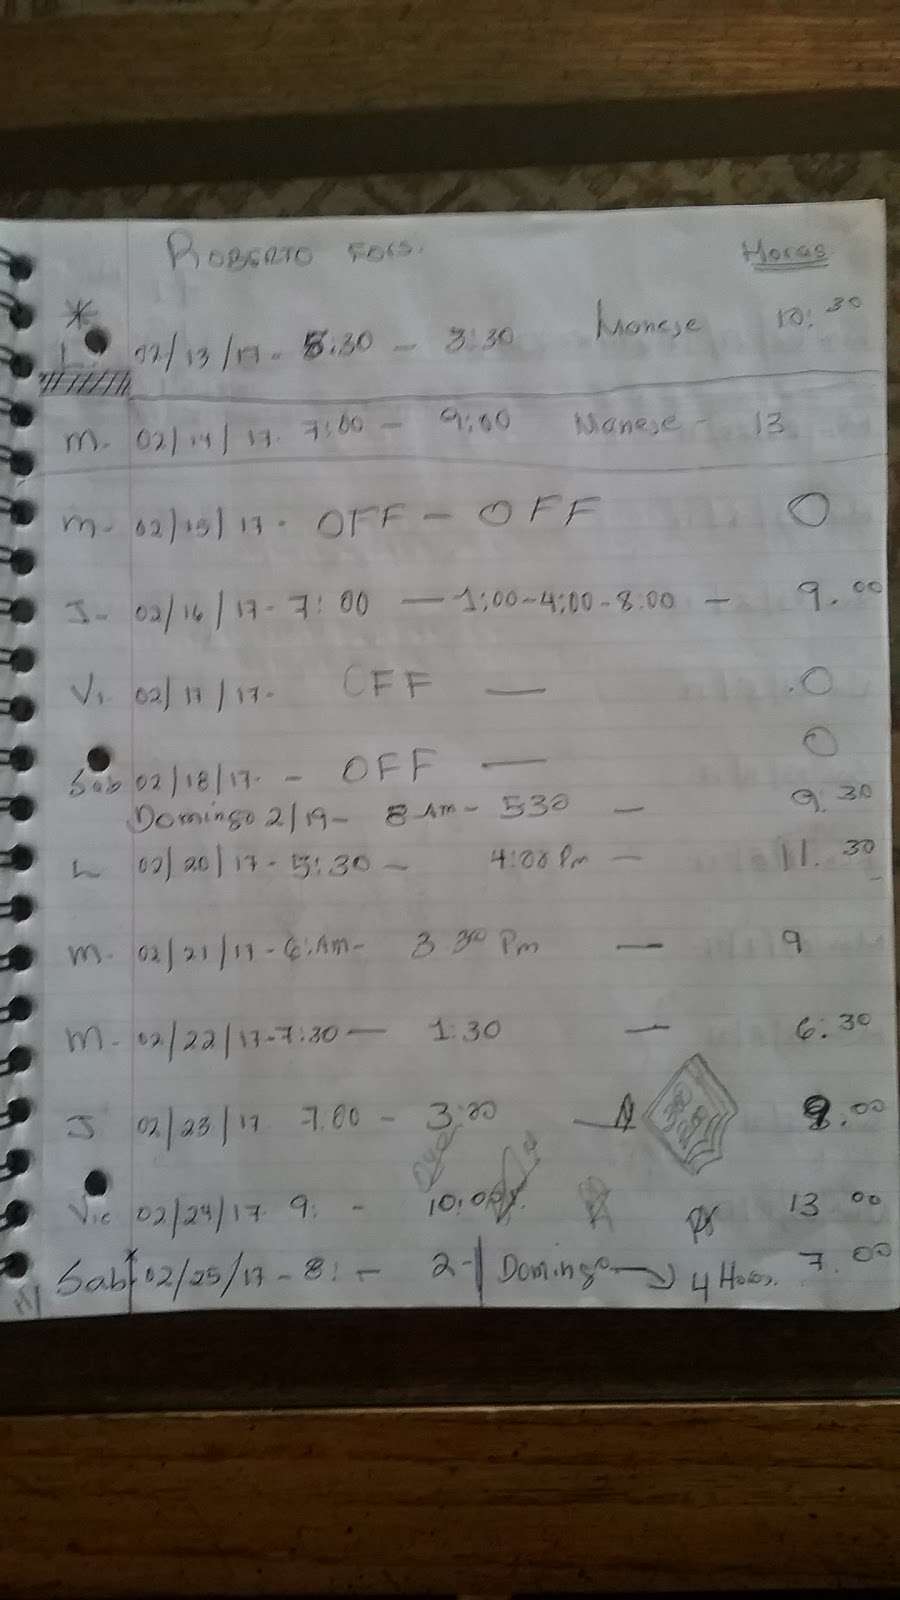 ROBERTO
Horas
L. 02/13/17 - 5:30 - 3:30 Manese 10:30
M. 02/14/17. 7:00 - 9:00 Manese - 13
M - 02/15/17 - OFF - OFF 0
J - 02/16/17 - 7:00 - 1:00 - 4:00 - 8:00 - 9.00
Vi 02/17/17 - OFF - 0
Sab 02/18/17 - OFF - 0
Domingo 2/19 - 8 AM - 530 - 9:30
L 02/20/17 - 5:30 - 4:00 Pm - 11.30
M - 02/21/17 - 6: Am - 3 30 Pm - 9
M - 02/22/17 - 7:30 - 1:30 - 6:30
J 02/23/17 7:00 - 3:00 - 9.00
Vie 02/24/17. 9: - 10:00 13 00
Sab 02/25/17 - 8: - 2 - Domingo → 4 Horas. 7.00